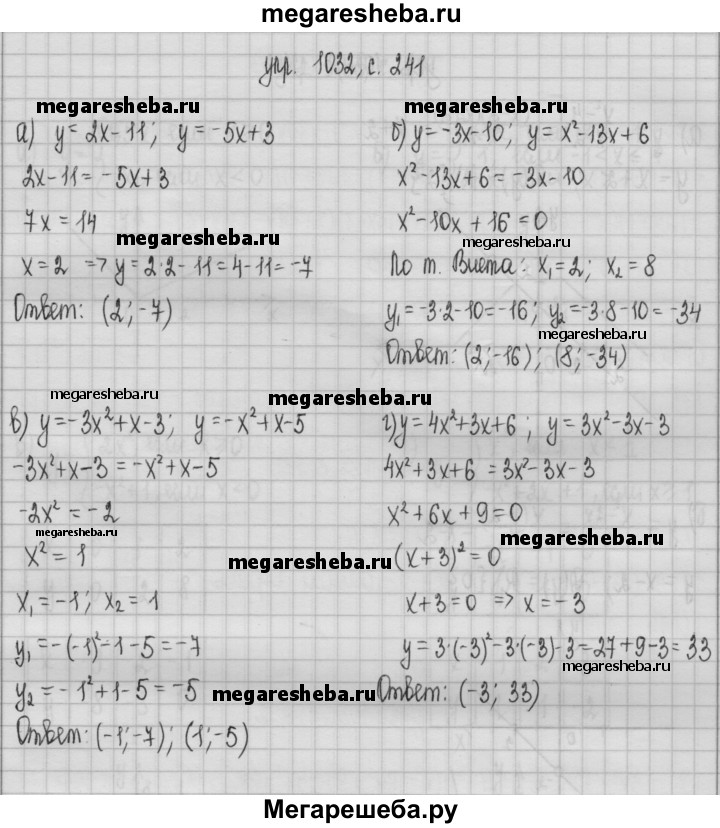 megaresheba.ru
упр. 1032, с. 241
megaresheba.ru
megaresheba.ru
а) y = 2x - 11; y = -5x + 3
2x - 11 = -5x + 3
7x = 14
megaresheba.ru
x = 2 => y = 2·2 - 11 = 4 - 11 = -7
Ответ: (2; -7)
б) y = -3x - 10; y = x² - 13x + 6
x² - 13x + 6 = -3x - 10
x² - 10x + 16 = 0
megaresheba.ru
По т. Виета: x₁ = 2; x₂ = 8
y₁ = -3·2 - 10 = -16; y₂ = -3·8 - 10 = -34
megaresheba.ru
Ответ: (2; -16); (8; -34)
megaresheba.ru
megaresheba.ru
в) y = -3x² + x - 3; y = -x² + x - 5
-3x² + x - 3 = -x² + x - 5
-2x² = -2
megaresheba.ru
x² = 1
megaresheba.ru
x₁ = -1; x₂ = 1
y₁ = -(-1)² - 1 - 5 = -7
y₂ = -1² + 1 - 5 = -5
megaresheba.ru
Ответ: (-1; -7); (1; -5)
г) y = 4x² + 3x + 6; y = 3x² - 3x - 3
4x² + 3x + 6 = 3x² - 3x - 3
x² + 6x + 9 = 0
megaresheba.ru
(x + 3)² = 0
x + 3 = 0 => x = -3
y = 3·(-3)² - 3·(-3) - 3 = 27 + 9 - 3 = 33
megaresheba.ru
Ответ: (-3; 33)
Мегарешеба.ру